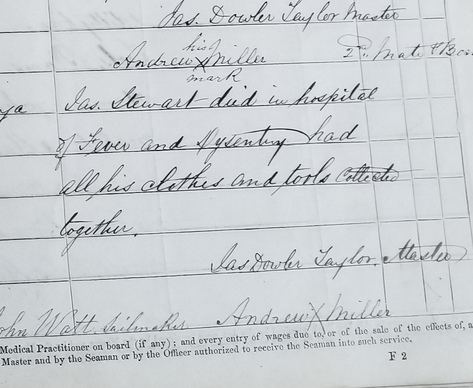 Jas. Dowler Taylor Master
his
Andrew X Miller 2nd Mate & Bos
mark
ya Jas. Stewart died in hospital
of Fever and Dysentry had
all his clothes and tools collected
together.
Jas Dowler Taylor. Master
John Watt. Sailmaker Andrew X Miller
Medical Practitioner on board (if any); and every entry of wages due to, or of the sale of the effects, of, a
Master and by the Seaman or by the Officer authorized to receive the Seaman into such service.
F 2